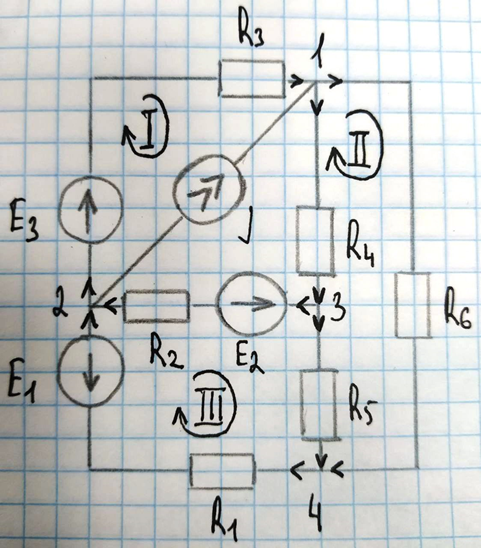 R3
1
I
II
E3
J
R4
2
3
R6
R2
E2
E1
III
R5
R1
4